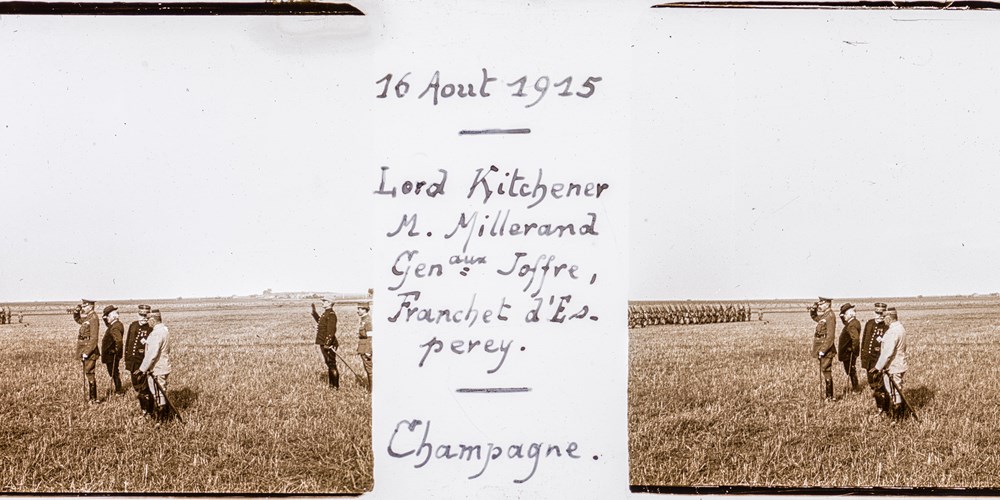 16 Aout 1915
Lord Kitchener
M. Millerand
Genaux: Joffre,
Franchet d'Es-
perey.
Champagne.